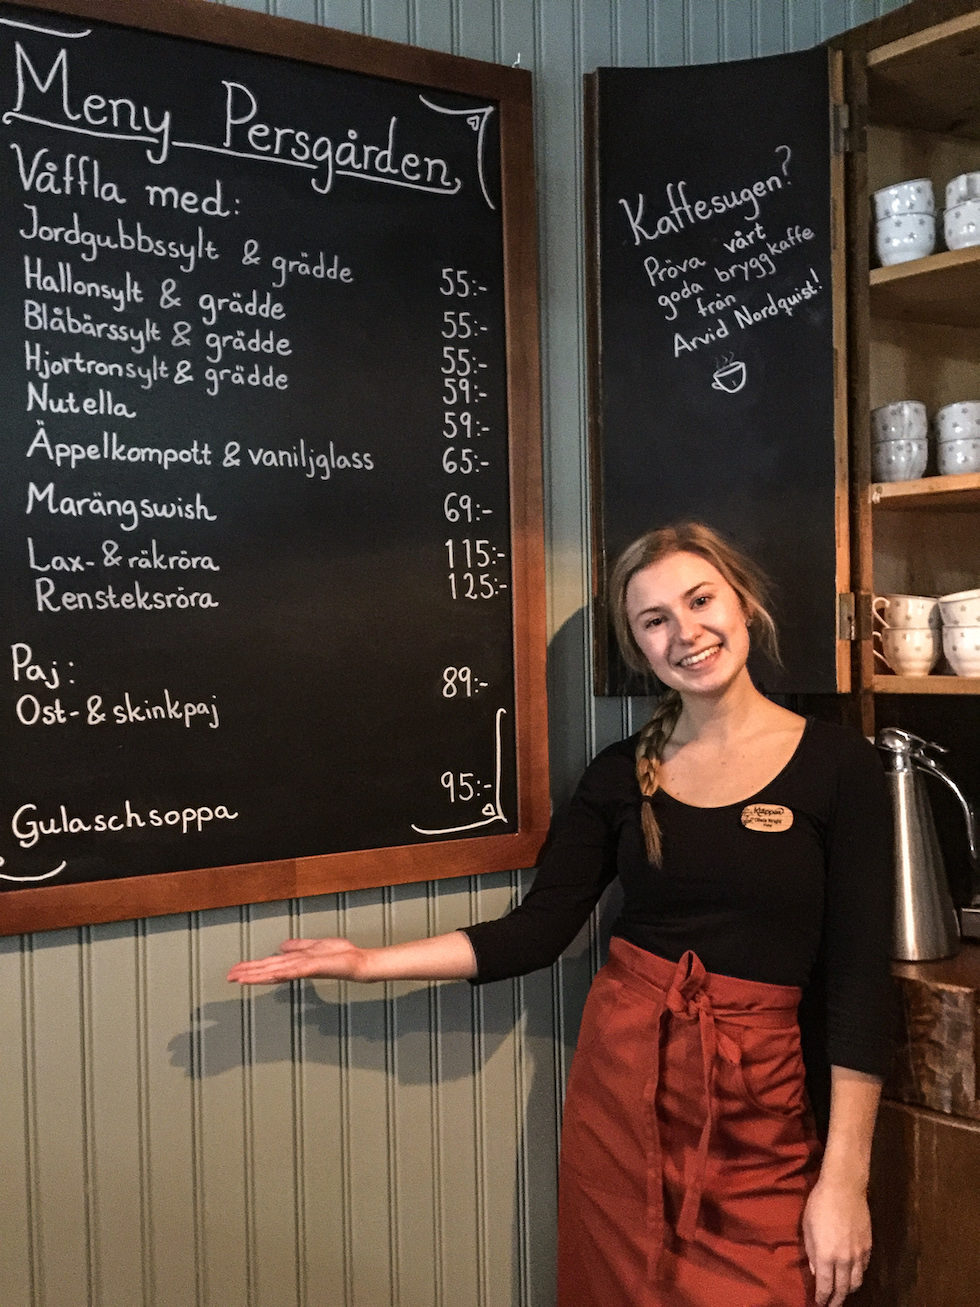 Meny Persgården
Våffla med:
Jordgubbssylt & grädde 55:-
Hallonsylt & grädde 55:-
Blåbärssylt & grädde 55:-
Hjortronsylt & grädde 59:-
Nutella 59:-
Äppelkompott & vaniljglass 65:-
Marängswish 69:-
Lax- & räkröra 115:-
Rensteksröra 125:-
Paj:
Ost- & skinkpaj 89:-
Gulaschsoppa 95:-
Kaffesugen?
Pröva vårt
goda bryggkaffe
från
Arvid Nordquist!
Kläppen